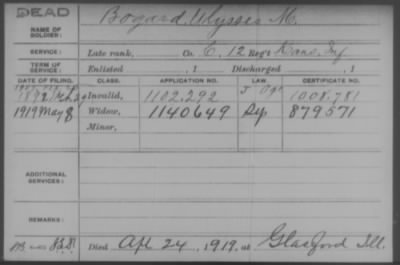 DEAD
NAME OF SOLDIER: Bogard, Ulysses M.
SERVICE: Late rank, Co. C, 12 Reg't Kans. Inf
TERM OF SERVICE: Enlisted , 1 Discharged , 1
DATE OF FILING. CLASS. APPLICATION NO. LAW. CERTIFICATE NO.
Invalid, 1102,292 1008,781
1919 May 8 Widow, 1140649 879571
Minor,
ADDITIONAL SERVICES:
REMARKS:
Died Apl 24, 1919, at Glasford Ill.